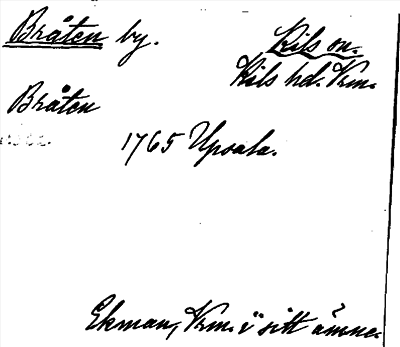 Bråten by.
Kils sn.
Kils hd. Vrm.
Bråten
1765 Upsala.
Ekman, Vrm. i sitt ämne.